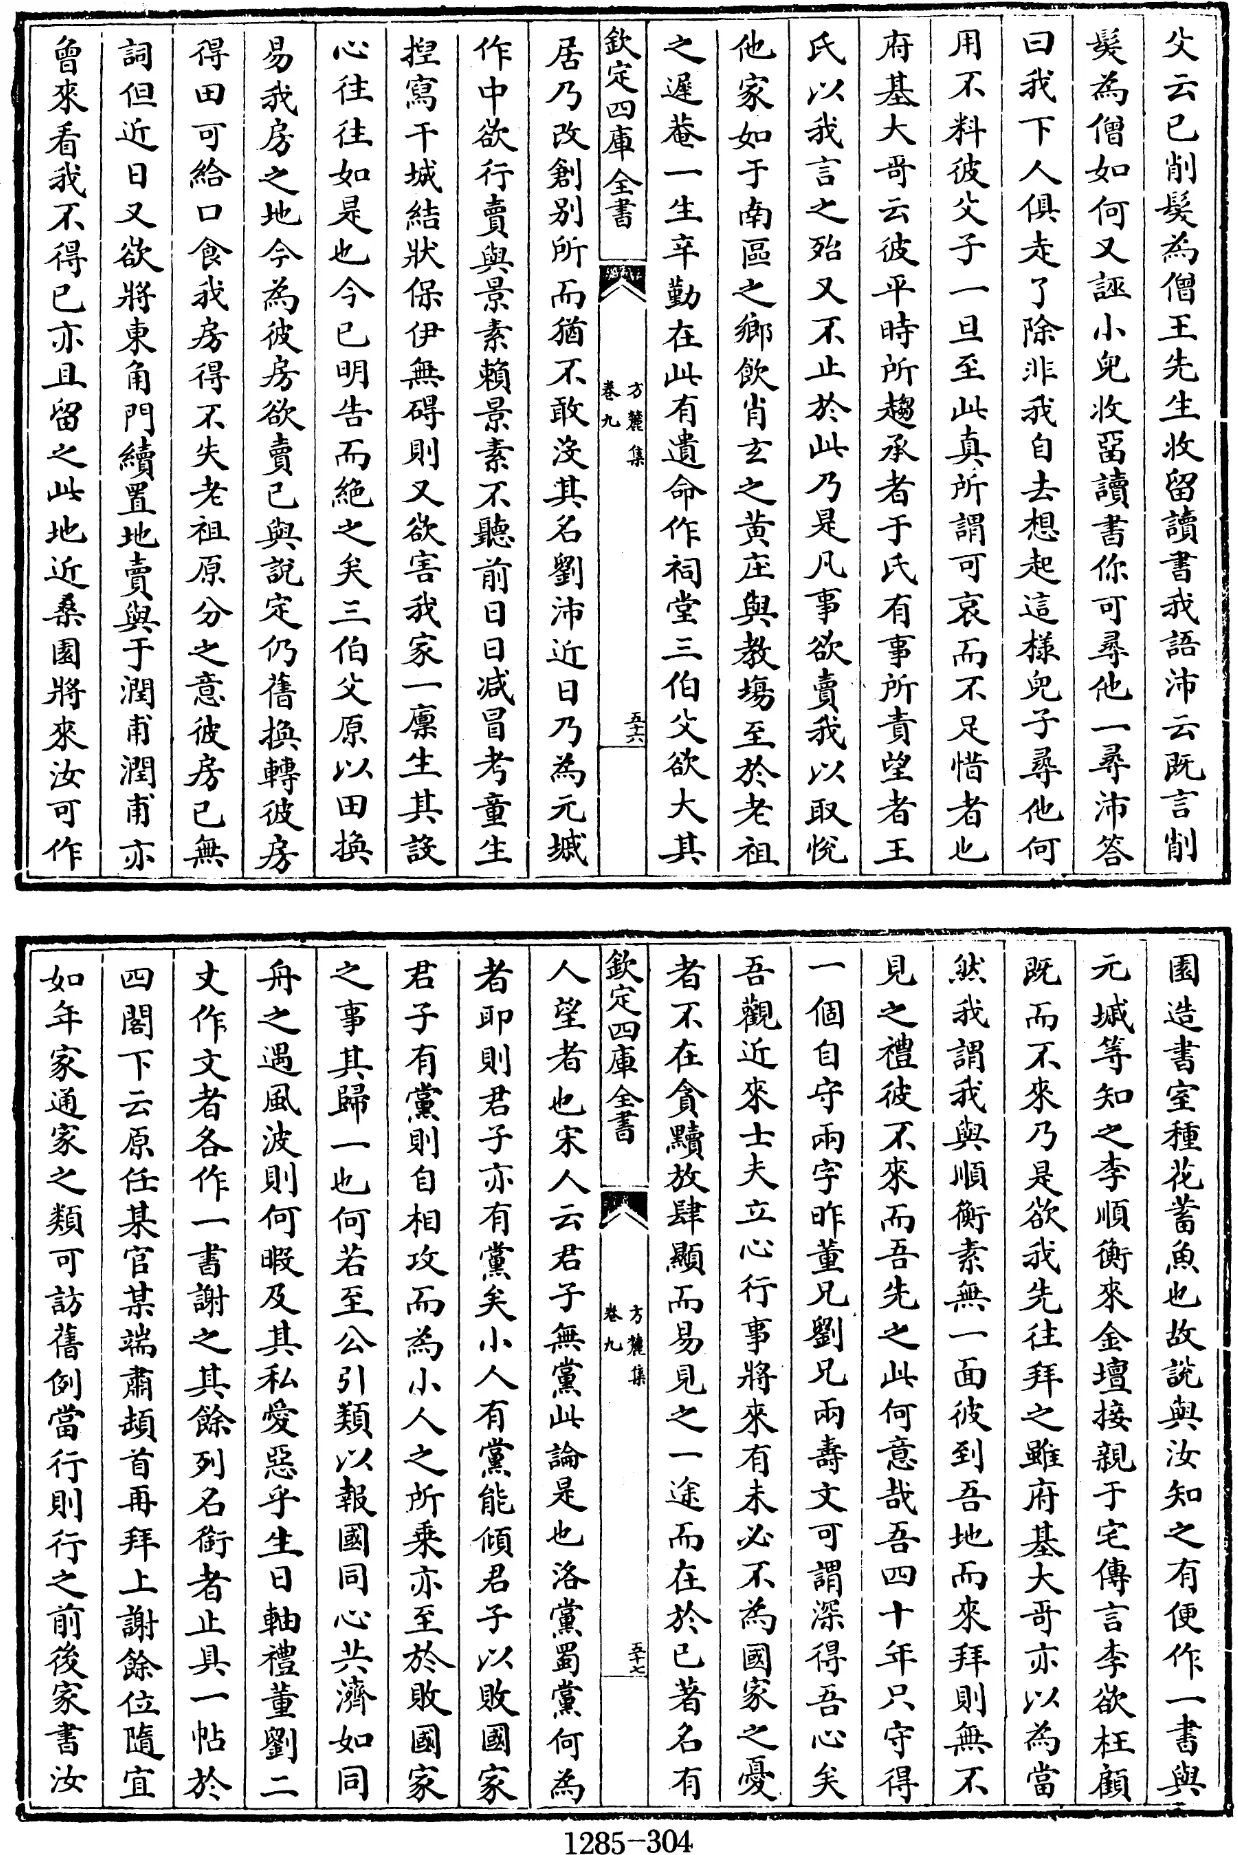 父云已削髮為僧王先生收留讀書我語沛云既言削
髮為僧如何又誣小兒收留讀書你可尋他一尋沛答
曰我下人俱走了除非我自去想起這様兒子尋他何
用不料彼父子一旦至此真所謂可哀而不足惜者也
府基大哥云彼平時所趨承者于氏有事所責望者王
氏以我言之殆又不止於此乃是凡事欲賣我以取悅
他家如于南區之鄉飲肖玄之黄庄與教塲至於老祖
之遲菴一生辛勤在此有遺命作祠堂三伯父欲大其
欽定四庫全書
方麓集
卷九
五十六
居乃改創别所而猶不敢沒其名劉沛近日乃為元堿
作中欲行賣與景素賴景素不聽前日日减冒考童生
揑寫干城結狀保伊無碍則又欲害我家一廪生其設
心往往如是也今已明告而絶之矣三伯父原以田換
易我房之地今為彼房欲賣已與說定仍舊換轉彼房
得田可給口食我房得不失老祖原分之意彼房已無
詞但近日又欲將東角門續置地賣與于潤甫潤甫亦
曾來看我不得已亦且留之此地近桑園將來汝可作
園造書室種花蓄魚也故説與汝知之有便作一書與
元堿等知之李順衡來金壇接親于宅傳言李欲枉顧
既而不來乃是欲我先往拜之雖府基大哥亦以為當
然我謂我與順衡素無一面彼到吾地而來拜則無不
見之禮彼不來而吾先之此何意哉吾四十年只守得
一個自守兩字昨董兄劉兄兩壽文可謂深得吾心矣
吾觀近來士夫立心行事將來有未必不為國家之憂
者不在貪黷放肆顯而易見之一途而在於已著名有
欽定四庫全書
方麓集
卷九
五十七
人望者也宋人云君子無黨此論是也洛黨蜀黨何為
者耶則君子亦有黨矣小人有黨能傾君子以敗國家
君子有黨則自相攻而為小人之所乘亦至於敗國家
之事其歸一也何若至公引類以報國同心共濟如同
舟之遇風波則何暇及其私愛惡乎生日軸禮董劉二
丈作文者各作一書謝之其餘列名銜者止具一帖於
四閣下云原任某官某端肅頓首再拜上謝餘位隨宜
如年家通家之類可訪舊例當行則行之前後家書汝
1285-304